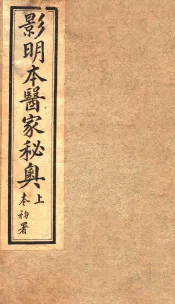 影明本醫家秘奧
上
本初署